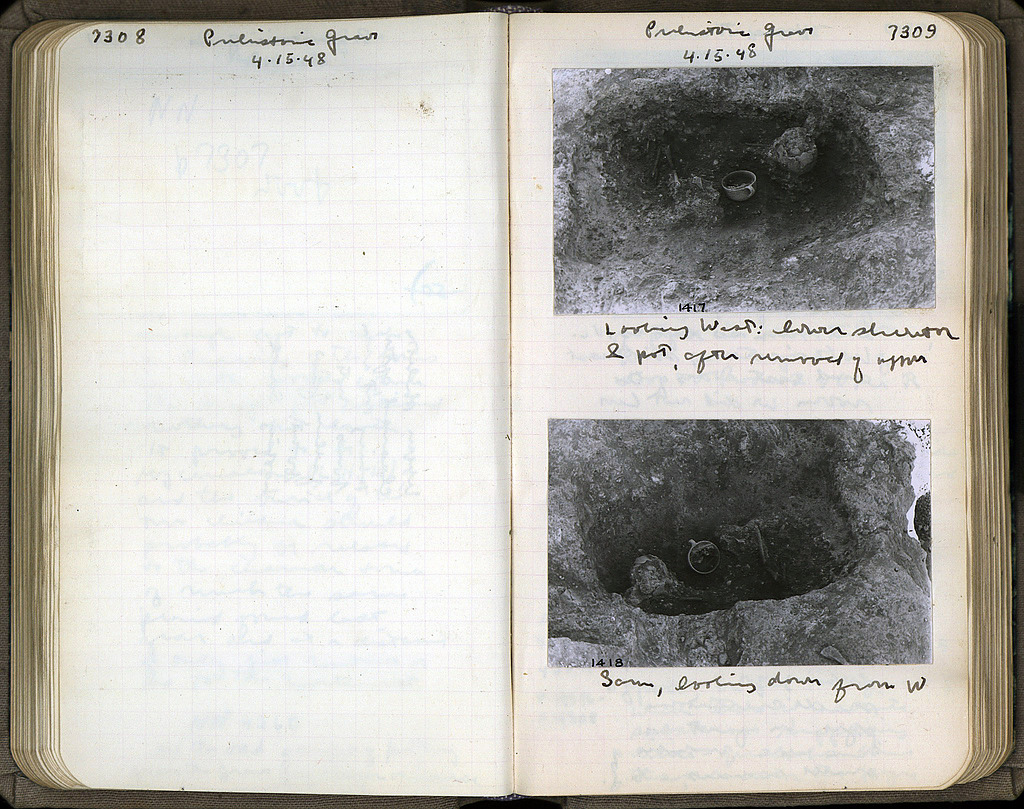 7308 Prehistoric Grave
4.15.48
Prehistoric Grave 7309
4.15.48
1417
Looking West: lower skeleton
& pot, after removal of upper
1418
Same, looking down from W